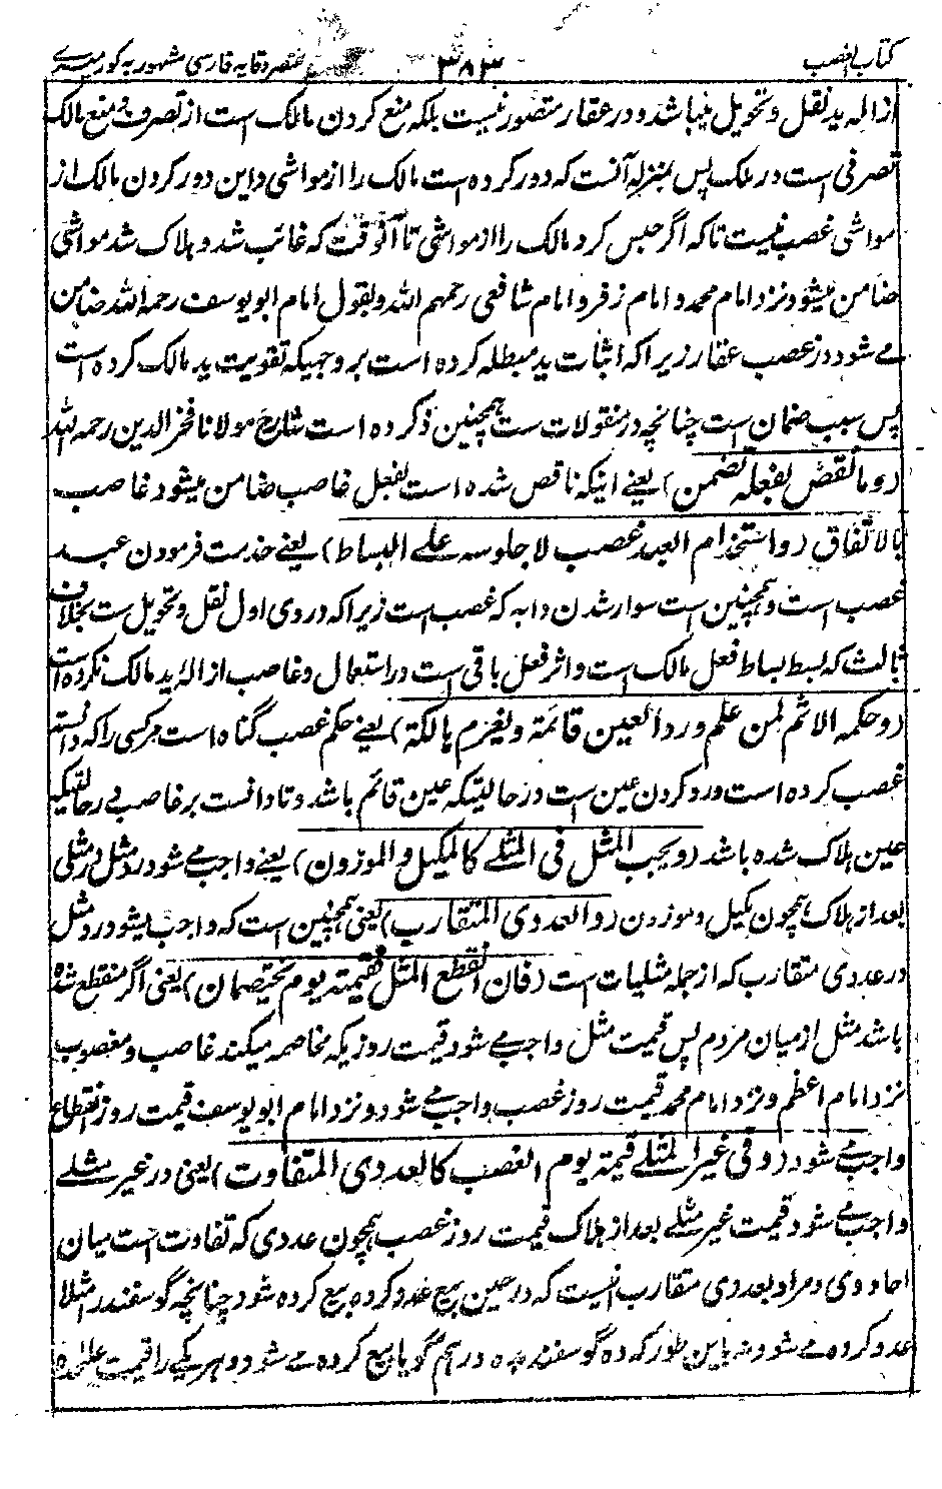 کتاب الغصب ۳۸۳ مختصر وقایه فارسی مشهور به کور میری
ازاله ید نقل و تحویل میباشد و در عقار متصور نیست بلکه منع کردن مالک است از تصرف و منع مالک
تصرفی است در ملک پس بمنزله آنست که دور کرده است مالک را از مواشی و این دور کردن مالک از
مواشی غصب نیست تاکه اگر حبس کرد مالک را از مواشی تا آنوقت که غائب شد و هلاک شد مواشی
ضامن میشود نزد امام محمد و امام زفر و امام شافعی رحمهم الله و بقول امام ابو یوسف رحمه الله ضامن
مے شود در غصب عقار زیرا که اثبات ید مبطله کرده است بر وجهیکه تفویت ید مالک کرده است
پس سبب ضمان است چنانچه در منقولات ست همچنین ذکر کرده است شارح مولانا فخر الدین رحمه الله
(و ما نقص بفعله تضمن) یعنے اینکه ناقص شده است بفعل غاصب ضامن میشود غاصب
بالاتفاق (و استخدام العبد غصب لا جلوسه علے البساط) یعنے خدمت فرمودن عبد
غصب است و همچنین است سوار شدن دابه که غصب است زیرا که در وی اول نقل و تحویل ست بخلاف
ثالث که بسط بساط فعل مالک است و اثر فعل باقی است در استعمال و غاصب ازالهٔ ید مالک نکرده است
(و حکمه الاثم لمن علم و رد العین قائمة و یغرم هالکة) یعنے حکم غصب گناه است مر کسی را که دانسته
غصب کرده است و رد کردن عین است در حالیتیکه عین قائم باشد و تاوانست بر غاصب در حالتیکه
عین هلاک شده باشد (و یجب المثل فی المثلے کالمکیل و الموزون) یعنے واجب مے شود رد مثل در مثلی
بعد از هلاک همچون مکیل و موزون (و العددی المتقارب) یعنی همچنین است که واجب میشود رد مثل
در عددی متقارب که از جمله مثلیات است (فان انقطع المثل فقیمته یوم یختصمان) یعنی اگر منقطع شده
باشد مثل از میان مردم پس قیمت مثل واجب مے شود قیمت روزیکه مخاصمه میکنند غاصب و مغصوب
نزد امام اعظم و نزد امام محمد قیمت روز غصب واجب مے شود و نزد امام ابو یوسف قیمت روز انقطاع
واجب مے شود (و فی غیر المثلے قیمته یوم الغصب کالعددی المتفاوت) یعنی در غیر مثلے
واجب مے شود قیمت غیر مثلے بعد از هلاک قیمت روز غصب همچون عددی که تفاوت است میان
احاد وی و مراد بعددی متقارب آنست که در حین بیع عدد کرده بیع کرده شود چنانچه گوسفند را مثلا
عدد کرده مے شود نه باین طور که ده گوسفند به ده درهم گویا بیع کرده مے شود و هر یکے را قیمت علیحده